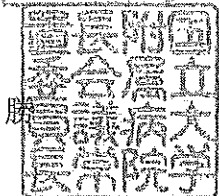 国立大学
附属病院
長会議常
置委員長
勝